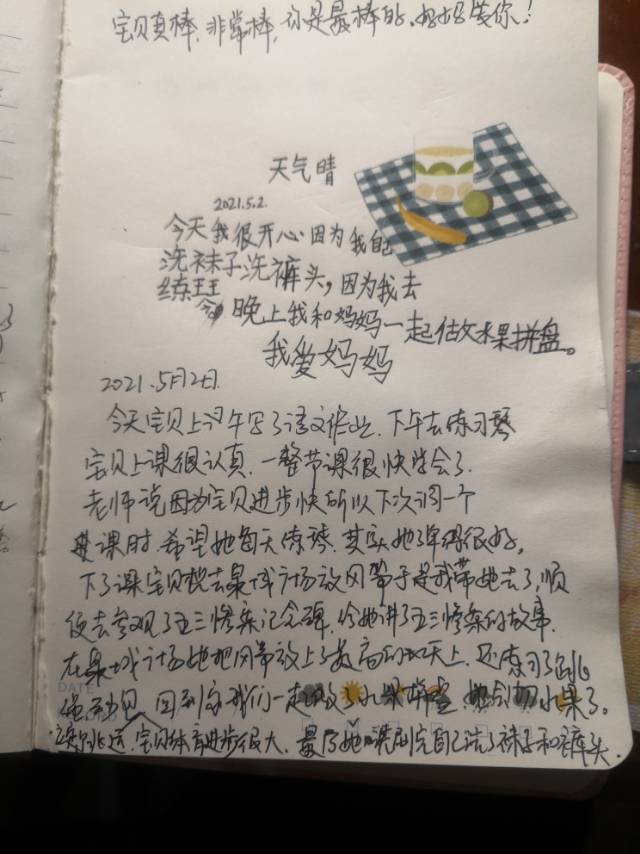 宝贝真棒,非常棒,你是最棒的。妈妈爱你!
天气晴
2021.5.2.
今天我很开心因为我自己
洗袜子洗裤头,因为我去
练
晚上我和妈妈一起做水果拼盘。
我爱妈妈
2021.5月2日.
今天宝贝上午写了语文作业.下午去练习琴
宝贝上课很认真.一整节课很快学会了.
老师说因为宝贝进步快所以下次调一个
课时.希望她每天练琴.其实她弹得很好。
下了课宝贝说去泉城广场放风筝于是我带她去了,顺
便去参观了五三惨案纪念碑.给她讲了五三惨案的故事.
在泉城广场她把风筝放上了高高的天上.还练习了跳
回到家我们一起做了水果拼盘 她会切水果了。
宝贝体育进步很大.最后她自己洗了袜子和裤头.